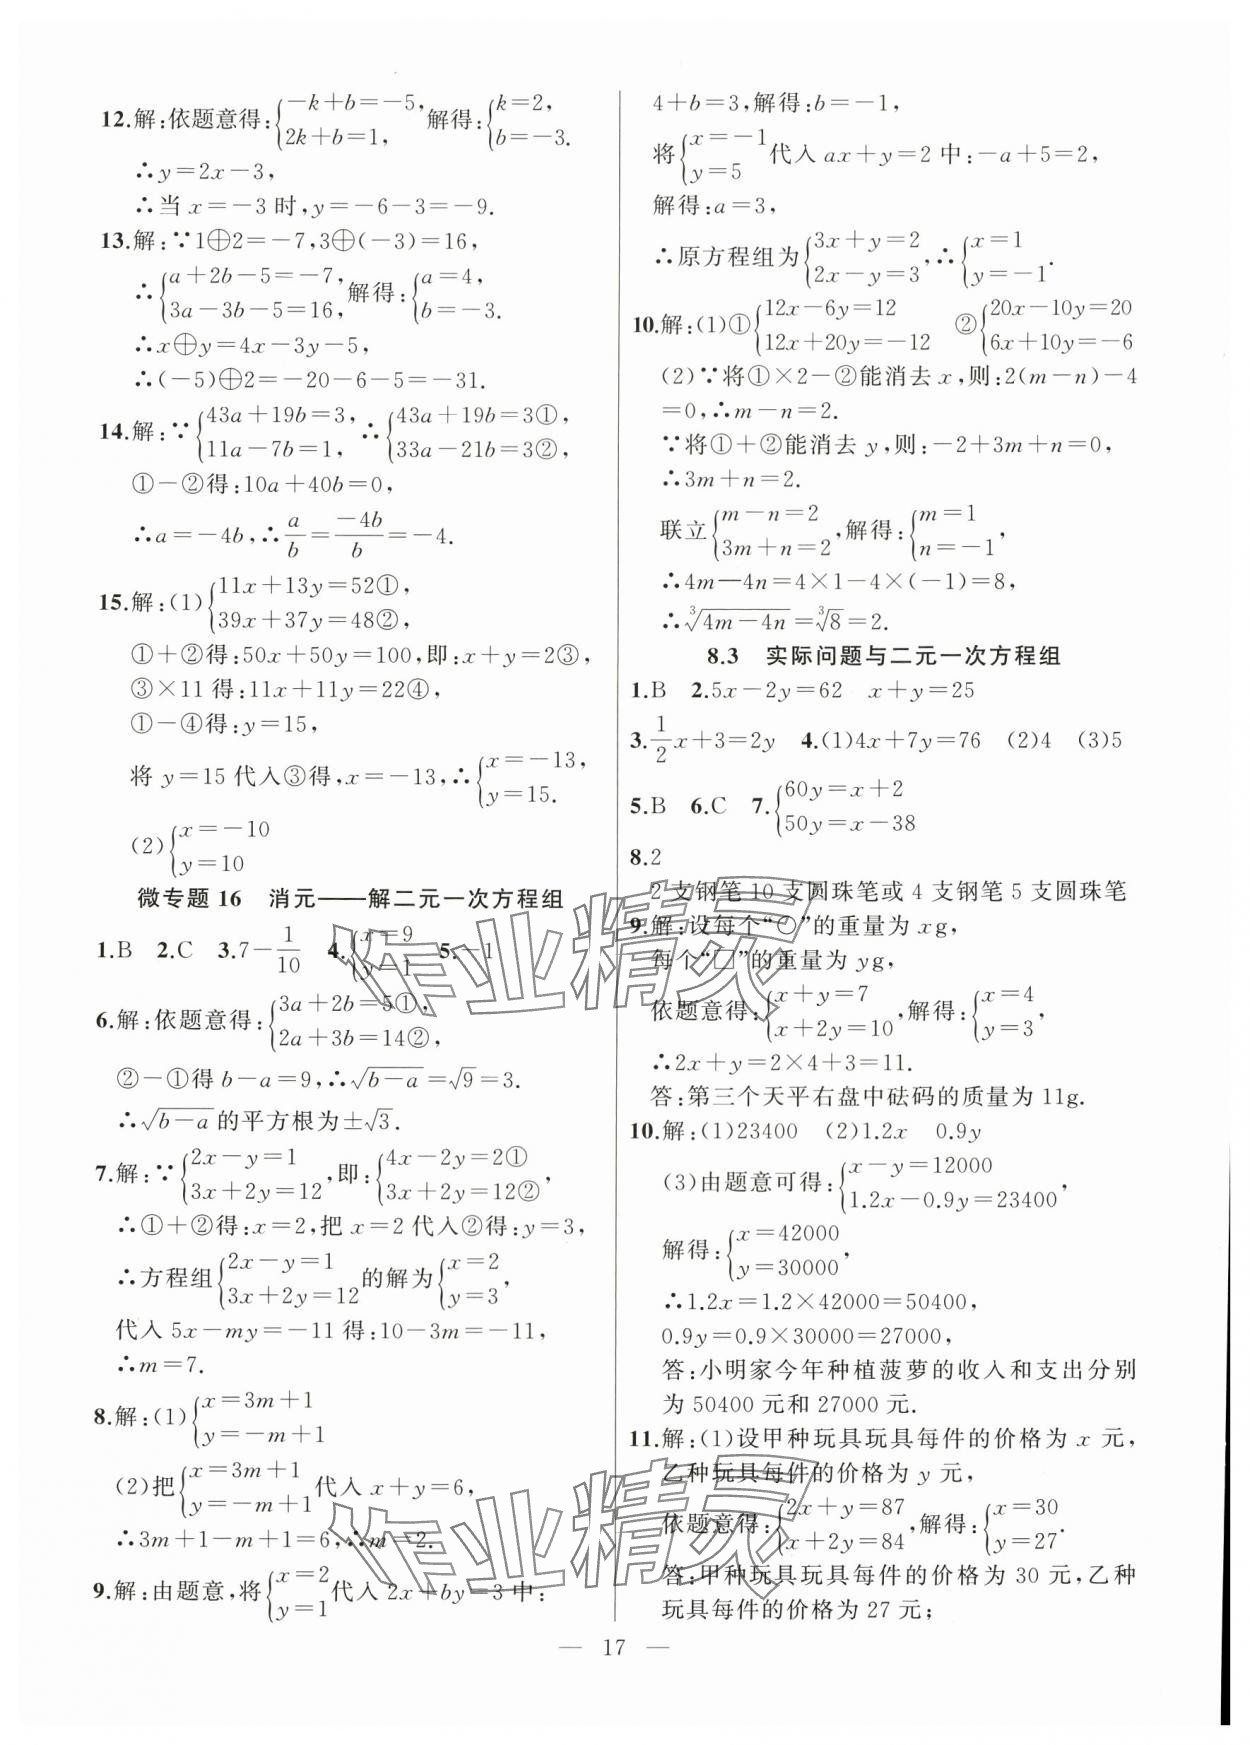 12.解:依题意得:{−k+b=−5, 2k+b=1, 解得:{k=2, b=−3.
∴y=2x−3,
∴当 x=−3 时,y=−6−3=−9.
13.解:∵1⊕2=−7,3⊕(−3)=16,
∴{a+2b−5=−7, 3a−3b−5=16, 解得:{a=4, b=−3.
∴x⊕y=4x−3y−5,
∴(−5)⊕2=−20−6−5=−31.
14.解:∵{43a+19b=3, 11a−7b=1, ∴{43a+19b=3①, 33a−21b=3②,
①−②得:10a+40b=0,
∴a=−4b,∴a/b=−4b/b=−4.
15.解:(1){11x+13y=52①, 39x+37y=48②,
①+②得:50x+50y=100,即:x+y=2③,
③×11得:11x+11y=22④,
①−④得:y=15,
将 y=15 代入③得,x=−13,∴{x=−13, y=15.
(2){x=−10 y=10
微专题 16 消元——解二元一次方程组
1.B 2.C 3.7−1/10 4.{x=9 y=1 5.−1
6.解:依题意得:{3a+2b=5①, 2a+3b=14②,
②−①得 b−a=9,∴√(b−a)=√9=3.
∴√(b−a)的平方根为±√3.
7.解:∵{2x−y=1 3x+2y=12,即:{4x−2y=2① 3x+2y=12②,
∴①+②得:x=2,把 x=2 代入②得:y=3,
∴方程组{2x−y=1 3x+2y=12的解为{x=2 y=3,
代入 5x−my=−11 得:10−3m=−11,
∴m=7.
8.解:(1){x=3m+1 y=−m+1
(2)把{x=3m+1 y=−m+1代入 x+y=6,
∴3m+1−m+1=6,∴m=2.
9.解:由题意,将{x=2 y=1代入 2x+by=3 中:
4+b=3,解得:b=−1,
将{x=−1 y=5代入 ax+y=2 中:−a+5=2,
解得:a=3,
∴原方程组为{3x+y=2 2x−y=3,∴{x=1 y=−1.
10.解:(1)①{12x−6y=12 12x+20y=−12 ②{20x−10y=20 6x+10y=−6
(2)∵将①×2−②能消去 x,则:2(m−n)−4
=0,∴m−n=2.
∵将①+②能消去 y,则:−2+3m+n=0,
∴3m+n=2.
联立{m−n=2 3m+n=2,解得:{m=1 n=−1,
∴4m—4n=4×1−4×(−1)=8,
∴∛(4m−4n)=∛8=2.
8.3 实际问题与二元一次方程组
1.B 2.5x−2y=62 x+y=25
3.1/2x+3=2y 4.(1)4x+7y=76 (2)4 (3)5
5.B 6.C 7.{60y=x+2 50y=x−38
8.2
2 支钢笔 10 支圆珠笔或 4 支钢笔 5 支圆珠笔
9.解:设每个“○”的重量为 xg,
每个“□”的重量为 yg,
依题意得:{x+y=7 x+2y=10,解得:{x=4 y=3,
∴2x+y=2×4+3=11.
答:第三个天平右盘中砝码的质量为 11g.
10.解:(1)23400 (2)1.2x 0.9y
(3)由题意可得:{x−y=12000 1.2x−0.9y=23400,
解得:{x=42000 y=30000,
∴1.2x=1.2×42000=50400,
0.9y=0.9×30000=27000,
答:小明家今年种植菠萝的收入和支出分别
为 50400 元和 27000 元.
11.解:(1)设甲种玩具玩具每件的价格为 x 元,
乙种玩具每件的价格为 y 元,
依题意得:{2x+y=87 x+2y=84,解得:{x=30 y=27.
答:甲种玩具玩具每件的价格为 30 元,乙种
玩具每件的价格为 27 元;
— 17 —
作业精灵
作业精灵